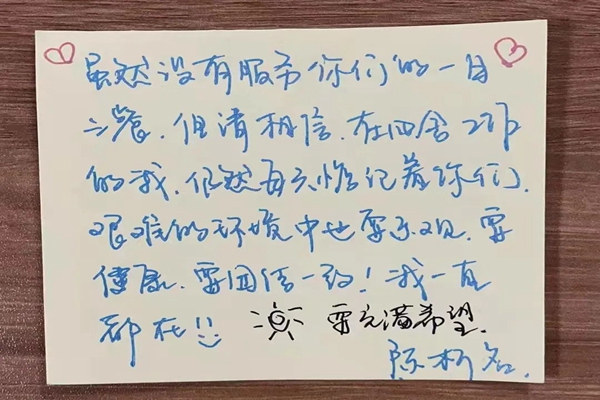 虽然没有服务你们的一日
三餐，但请相信，在四舍211
的我，仍然每天惦记着你们，
艰难的环境中也要乐观，要
健康，要团结一致！我一直
都在!!
要充满希望。
陈